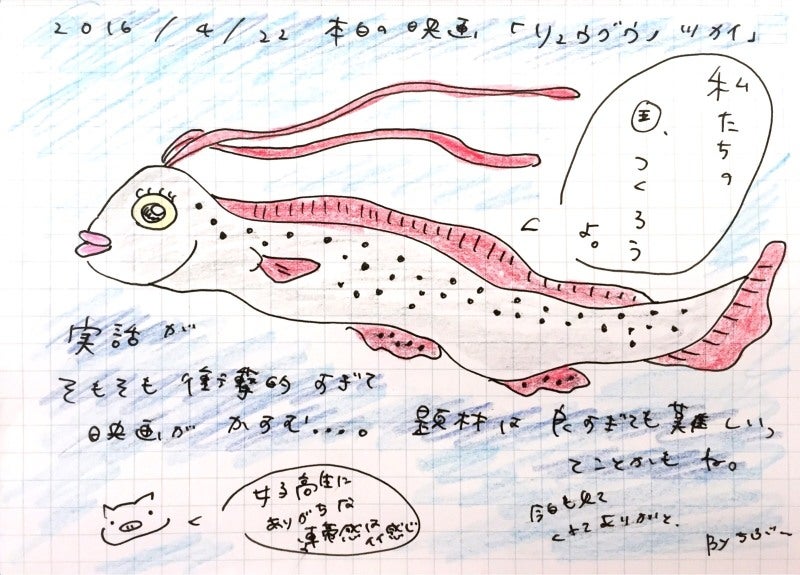 2016/4/22 本日の映画「リュウグウノツカイ」
私たちの
国、
つくろう
よ。
実話が
そもそも衝撃的すぎて
映画がかすむ‥‥。題材は良すぎても難しい、
てことかもね。
女子高生に
ありがちな
連帯感はイイ感じ
今日も見て
くれてありがと、
By ちぶー